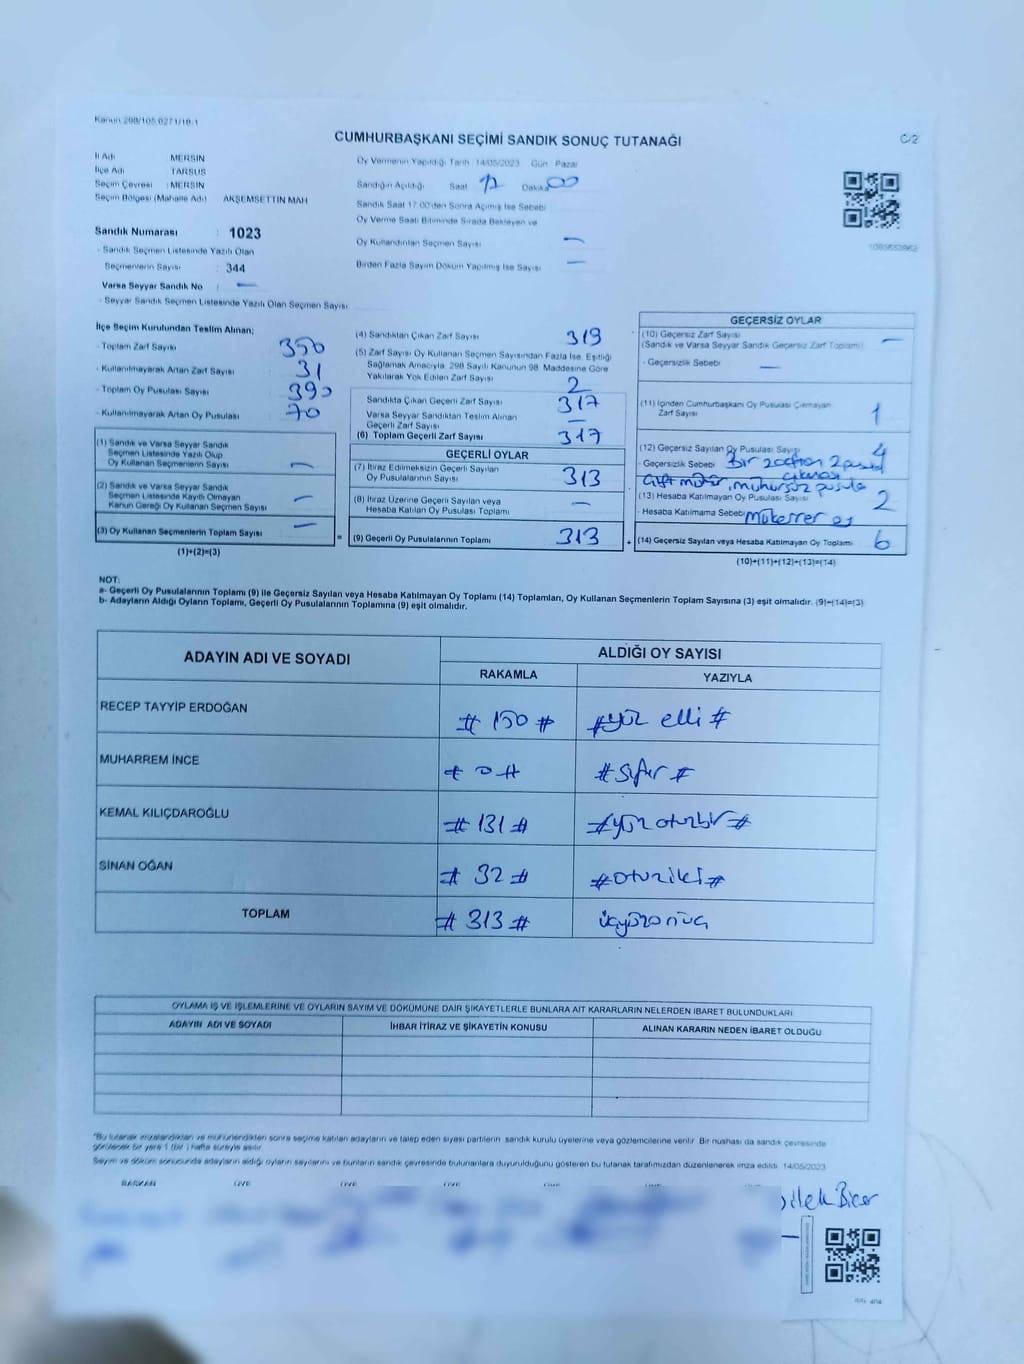 Kanun 298/105,0271/18.1
CUMHURBAŞKANI SEÇİMİ SANDIK SONUÇ TUTANAĞI
C/2
İl Adı MERSİN
İlçe Adı TARSUS
Seçim Çevresi : MERSİN
Seçim Bölgesi (Mahalle Adı) AKŞEMSETTİN MAH
Sandık Numarası : 1023
- Sandık Seçmen Listesinde Yazılı Olan
Seçmenlerin Sayısı : 344
Varsa Seyyar Sandık No : —
- Seyyar Sandık Seçmen Listesinde Yazılı Olan Seçmen Sayısı
Oy Vermenin Yapıldığı Tarih 14/05/2023 Gün Pazar
Sandığın Açıldığı Saat 17 Dakika 00
Sandık Saat 17:00'den Sonra Açılmış İse Sebebi
Oy Verme Saati Bitiminde Sırada Bekleyen ve
Oy Kullandırılan Seçmen Sayısı —
Birden Fazla Sayım Döküm Yapılmış İse Sayısı —
1085653962
İlçe Seçim Kurulundan Teslim Alınan;
- Toplam Zarf Sayısı 350
- Kullanılmayarak Artan Zarf Sayısı 31
- Toplam Oy Pusulası Sayısı 390
- Kullanılmayarak Artan Oy Pusulası 70
(1) Sandık ve Varsa Seyyar Sandık
Seçmen Listesinde Yazılı Olup
Oy Kullanan Seçmenlerin Sayısı —
(2) Sandık ve Varsa Seyyar Sandık
Seçmen Listesinde Kayıtlı Olmayan
Kanun Gereği Oy Kullanan Seçmen Sayısı —
(3) Oy Kullanan Seçmenlerin Toplam Sayısı —
(1)+(2)=(3)
=
(4) Sandıktan Çıkan Zarf Sayısı 319
(5) Zarf Sayısı Oy Kullanan Seçmen Sayısından Fazla İse, Eşitliği
Sağlamak Amacıyla, 298 Sayılı Kanunun 98. Maddesine Göre
Yakılarak Yok Edilen Zarf Sayısı 2
Sandıkta Çıkan Geçerli Zarf Sayısı 317
Varsa Seyyar Sandıktan Teslim Alınan
Geçerli Zarf Sayısı —
(6) Toplam Geçerli Zarf Sayısı 317
GEÇERLİ OYLAR
(7) İtiraz Edilmeksizin Geçerli Sayılan
Oy Pusulalarının Sayısı 313
(8) İtiraz Üzerine Geçerli Sayılan veya
Hesaba Katılan Oy Pusulası Toplamı —
(9) Geçerli Oy Pusulalarının Toplamı 313
+
GEÇERSİZ OYLAR
(10) Geçersiz Zarf Sayısı
(Sandık ve Varsa Seyyar Sandık Geçersiz Zarf Toplamı) —
- Geçersizlik Sebebi —
(11) İçinden Cumhurbaşkanı Oy Pusulası Çıkmayan
Zarf Sayısı 1
(12) Geçersiz Sayılan Oy Pusulası Sayısı 4
- Geçersizlik Sebebi Bir zarftan 2 pusula
çıkması
çift mühür, mühürsüz pusula
(13) Hesaba Katılmayan Oy Pusulası Sayısı 2
- Hesaba Katılmama Sebebi Mükerrer oy
(14) Geçersiz Sayılan veya Hesaba Katılmayan Oy Toplamı 6
(10)+(11)+(12)+(13)=(14)
NOT:
a- Geçerli Oy Pusulalarının Toplamı (9) ile Geçersiz Sayılan veya Hesaba Katılmayan Oy Toplamı (14) Toplamları, Oy Kullanan Seçmenlerin Toplam Sayısına (3) eşit olmalıdır. (9)+(14)=(3)
b- Adayların Aldığı Oyların Toplamı, Geçerli Oy Pusulalarının Toplamına (9) eşit olmalıdır.
ADAYIN ADI VE SOYADI ALDIĞI OY SAYISI
RAKAMLA YAZIYLA
RECEP TAYYİP ERDOĞAN # 150 # #yüz elli #
MUHARREM İNCE # 0 # #Sıfır #
KEMAL KILIÇDAROĞLU # 131 # #yüz otuzbir #
SİNAN OĞAN # 32 # #otuziki#
TOPLAM # 313 # üçyüzonüç
OYLAMA İŞ VE İŞLEMLERİNE VE OYLARIN SAYIM VE DÖKÜMÜNE DAİR ŞİKAYETLERLE BUNLARA AİT KARARLARIN NELERDEN İBARET BULUNDUKLARI
ADAYIN ADI VE SOYADI İHBAR İTİRAZ VE ŞİKAYETİN KONUSU ALINAN KARARIN NEDEN İBARET OLDUĞU
"Bu tutanak imzalandıktan ve mühürlendikten sonra seçime katılan adayların ve talep eden siyasi partilerin sandık kurulu üyelerine veya gözlemcilerine verilir. Bir nüshası da sandık çevresinde
görülecek bir yere 1 (bir) hafta süreyle asılır.
Sayım ve döküm sonucunda adayların aldığı oyların sayılarını ve bunların sandık çevresinde bulunanlara duyurulduğunu gösteren bu tutanak tarafımızdan düzenlenerek imza edildi. 14/05/2023
BAŞKAN ÜYE ÜYE ÜYE ÜYE ÜYE